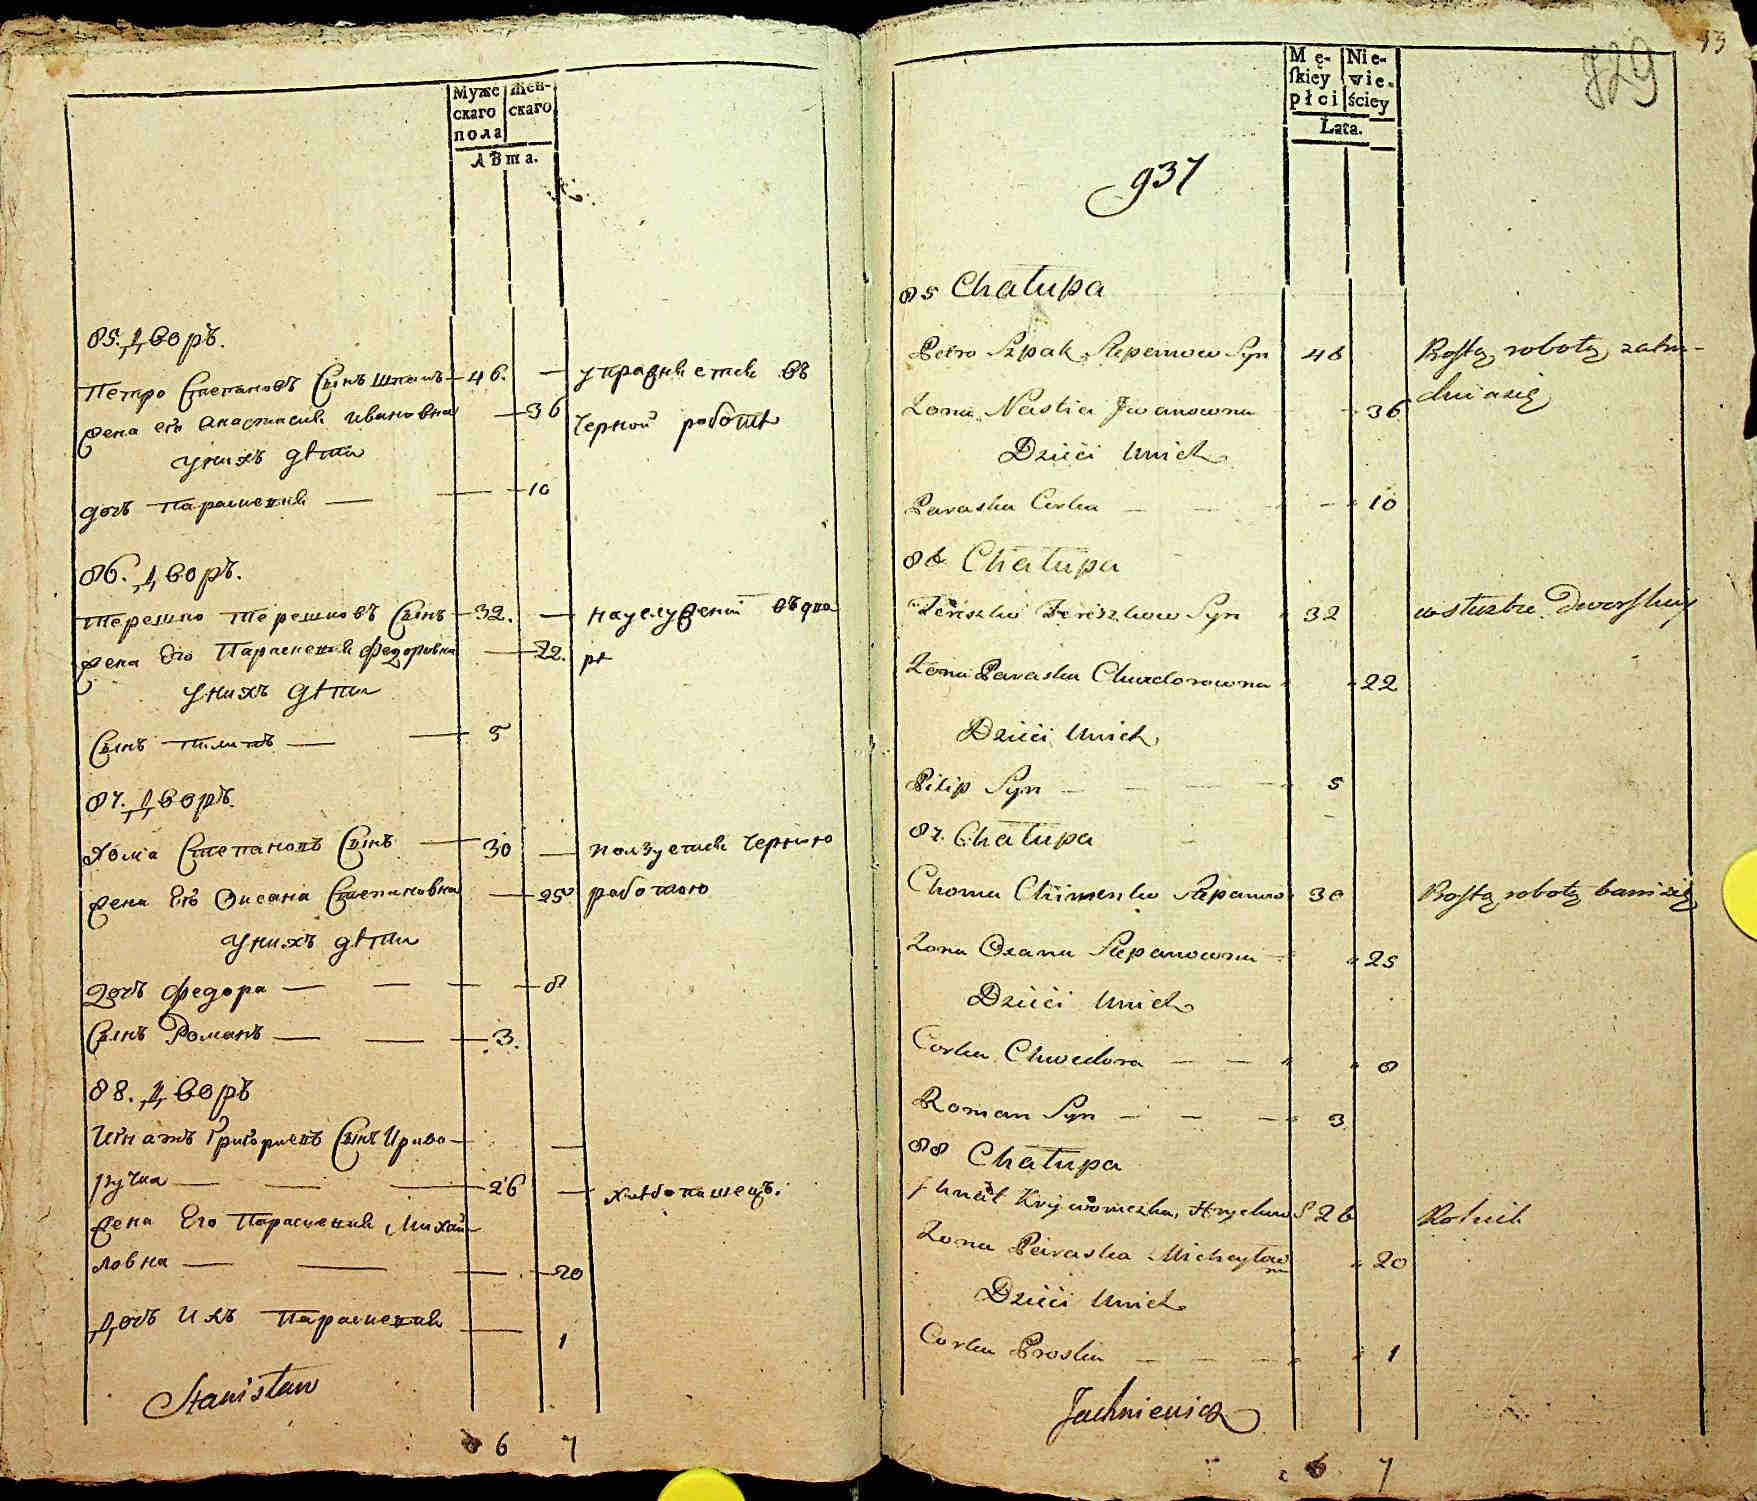 Муже
скаго
пола
Жен-
скаго
Лѣта.
85. Дворъ.
Петро Степановъ Сынъ Шпакъ 46. упражняется въ
Жена его Анастасия Ивановна 36 черной работѣ
У нихъ дѣти
дочь Парасковия 10
86. Дворъ.
Терешко Терешковъ Сынъ 32. на услужении въ дво
Жена Его Парасковия Федоровна 22. рѣ
У нихъ дѣти
Сынъ Пилипъ 5
87. Дворъ.
Хома Степановъ Сынъ 30 ползуется черною
Жена Его Оксана Степановна 25 работою
У нихъ дѣти
Дочь Федора 8
Сынъ Романъ 3.
88. Дворъ
Игнатъ Григориевъ Сынъ Криво-
ручка 26 хлебопашецъ.
Жена Его Парасковия Михай-
ловна 20
Дочь Ихъ Парасковия 1
Stanisław
6 7
Mę-
skiey
płci
Nie-
wie-
ściey
Lata.
829
93
937
85 Chałupa
Petro Szpak Stepanow Syn 46 Prostą robotą zatru-
Zona Nastia Iwanowna 36 dniasię
Dzieci Unich
Paraska Corka 10
86 Chałupa
Tereszko Tereszkow Syn 32 w służbie Dworskiey
Zona Paraska Chwedorowna 22
Dzieci Unich
Pilip Syn 5
87. Chałupa
Choma Climenko Stepanow 30 Prostą robotą bawi się
Zona Oxana Stepanowna 25
Dzieci Unich
Corka Chwedora 8
Roman Syn 3
88 Chałupa
Ihnat Kryworuczka, Hrychow S 26 Rolnik
Zona Paraska Michayłow
na 20
Dzieci Unich
Corka Proska 1
Jachniewicz
6 7